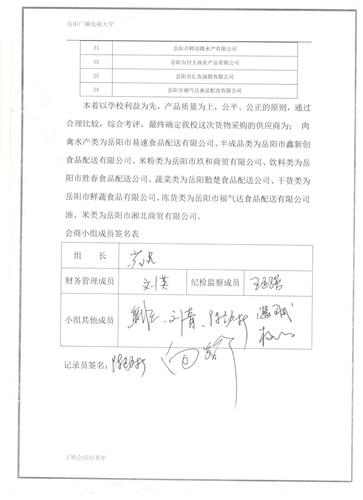 岳阳广播电视大学
21 岳阳市鲜活跳水产有限公司
22 岳阳市付大叔农产品有限公司
23 岳阳市汇友油脂有限公司
24 岳阳市福气达食品配送有限公司
本着以学校利益为先，产品质量为上，公平、公正的原则，通过
合理比较，综合考评，最终确定我校这次货物采购的供应商为： 肉
禽水产类为岳阳市易速食品配送有限公司。半成品类为岳阳市鑫新创
食品配送有限公司、米粉类为岳阳市玖和商贸有限公司、饮料类为岳阳
市胜春食品配送公司、蔬菜类为岳阳勤楚食品配送公司、干货类为
岳阳市鲜蔬食品有限公司、冻货类为岳阳市福气达食品配送有限公司
油、米类为岳阳市湘北商贸有限公司。
会商小组成员签名表
组 长
财务管理成员 文川英 纪检监察成员
小组其他成员 刘青
记录员签名：